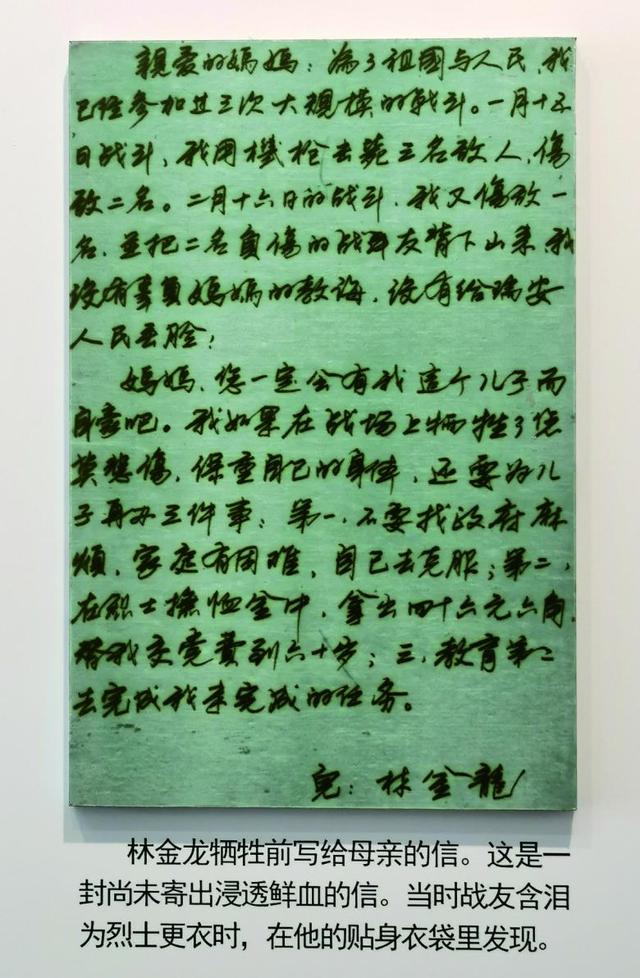 親爱的媽媽：為了祖國与人民，我
已经参加过三次大規模的战斗。一月十五
日战斗，我用機枪击毙三名敌人，傷
敌二名。二月十六日的战斗，我又傷敌一
名，並把二名負傷的战友背下山来，我
没有辜負媽媽的教诲，没有给瑞安
人民丢脸！
媽媽，您一定会有我這个儿子而
自豪吧。我如果在战场上牺牲了您
莫悲傷，保重自己的身体，还要为儿
子再办三件事：第一，不要找政府麻
煩，家庭有困难，自己去克服；第二，
在烈士撫恤金中，拿出四十六元六角，
替我交党費到六十岁；三，教育弟弟
去完成我未完成的任务。
兒：林金龍
林金龙牺牲前写给母亲的信。这是一
封尚未寄出浸透鲜血的信。当时战友含泪
为烈士更衣时，在他的贴身衣袋里发现。